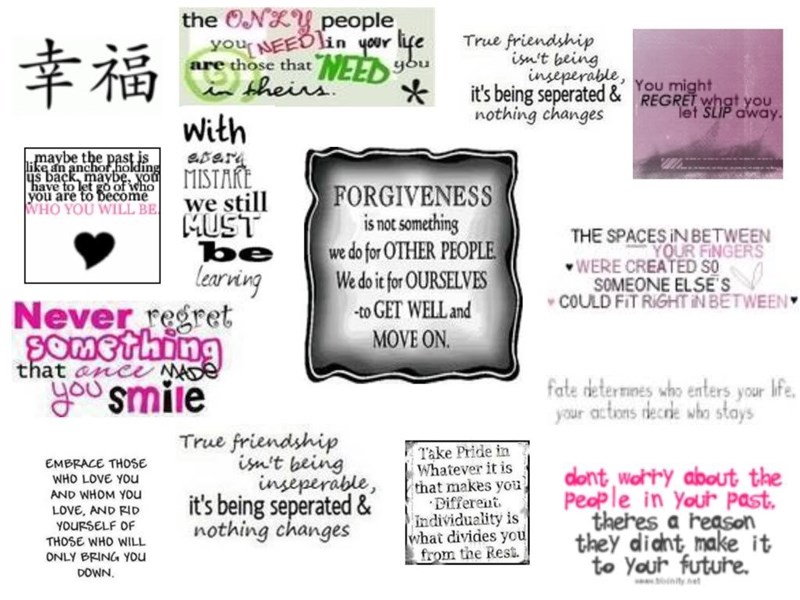 幸福
the ONLY people
you [NEED] in your life
are those that NEED you
in theirs.
*
True friendship
isn't being
inseperable,
it's being seperated &
nothing changes
You might
REGRET what you
let SLIP away.
maybe the past is
like an anchor holding
us back. maybe, you
have to let go of who
you are to become
WHO YOU WILL BE.
With
every
MISTAKE
we still
MUST
be
learning
FORGIVENESS
is not something
we do for OTHER PEOPLE.
We do it for OURSELVES
-to GET WELL and
MOVE ON.
THE SPACES iN BETWEEN
YOUR FiNGERS
♥ WERE CREATED SO
SOMEONE ELSE'S
♥ COULD FiT RiGHT iN BETWEEN ♥
Never regret
something
that once MADE
you smile
fate determines who enters your life,
your actions decide who stays
EMBRACE THOSE
WHO LOVE YOU
AND WHOM YOU
LOVE, AND RID
YOURSELF OF
THOSE WHO WILL
ONLY BRING YOU
DOWN.
True friendship
isn't being
inseperable,
it's being seperated &
nothing changes
Take Pride in
Whatever it is
that makes you
Different,
Individuality is
what divides you
from the Rest.
dont worry about the
people in your past,
theres a reason
they didnt make it
to your future.